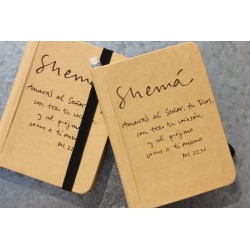 Shemá
Amarás al Señor, tu Dios,
con todo tu corazón
y al prójimo
como a ti mismo
Shemá
Amarás al Señor, tu Dios,
con todo tu corazón,
y al prójimo
como a ti mismo
Mt 22,32